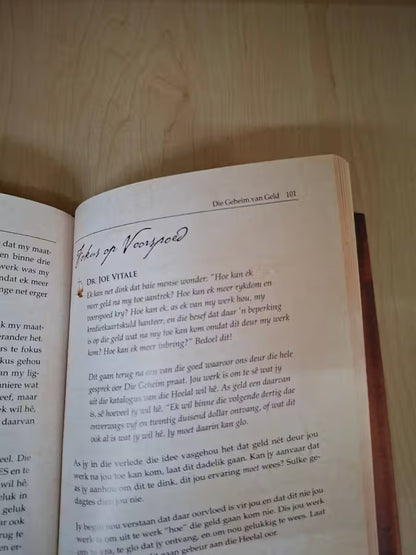 dat my maat-
en binne drie
werk was my
dat ek meer
nge net erger
k my maat-
erander het.
ers te fokus
kus gehou
an my lig-
niere wat
k wil hê.
daarvan
eel. Die
ES en te
wil hê.
eluk in
geluk
ar ook
en er-
Die Geheim van Geld 101
Fokus op Voorspoed
DR. JOE VITALE
Ek kan net dink dat baie mense wonder: "Hoe kan ek
meer geld na my toe aantrek? Hoe kan ek meer rykdom en
voorspoed kry? Hoe kan ek, as ek van my werk hou, my
kredietkaartskuld hanteer, en die besef dat daar 'n beperking
is op die geld wat na my toe kan kom omdat dit deur my werk
kom? Hoe kan ek meer inbring?" Bedoel dit!
Dit gaan terug na een van die goed waaroor ons deur die hele
gesprek oor Die Geheim praat. Jou werk is om te sê wat jy
uit die katalogus van die Heelal wil hê. As geld een daarvan
is, sê hoeveel jy wil hê. "Ek wil binne die volgende dertig dae
onverwags vyf en twintig duisend dollar ontvang, of wat dit
ook al is wat jy wil hê. Jy moet daarin kan glo.
As jy in die verlede die idee vasgehou het dat geld net deur jou
werk na jou toe kan kom, laat dit dadelik gaan. Kan jy aanvaar dat
as jy aanhou om dit te dink, dit jou ervaring moet wees? Sulke ge-
dagtes dien jou nie.
Jy begin nou verstaan dat daar oorvloed is vir jou en dat dit nie jou
werk is om uit te werk "hoe" die geld gaan kom nie. Dis jou werk
om te vra, te glo dat jy ontvang, en om nou gelukkig te wees. Laat
gaan gebeur aan die Heelal oor.